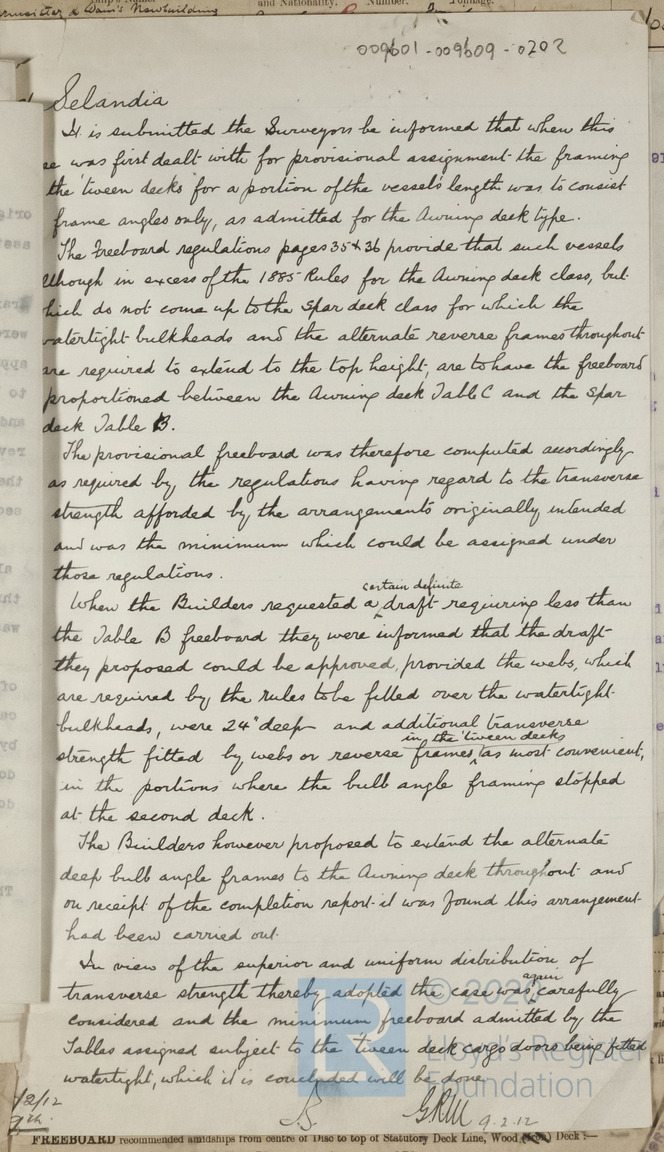 and Nationality. Number. Tonnage.
& Wain's Newbuilding
009601-009609-0202
Selandia
It is submitted the Surveyors be informed that when this
se was first dealt with for provisional assignment the framing
the 'tween decks for a portion of the vessel's length was to consist
frame angles only, as admitted for the Awning deck type.
The Freeboard regulations pages 35 & 36 provide that such vessels
lthough in excess of the 1885 Rules for the Awning deck class, but
hich do not come up to the Spar deck class for which the
watertight bulkheads and the alternate reverse frames throughout
are required to extend to the top height, are to have the freeboard
proportioned between the Awning deck Table C and the Spar
deck Table B.
The provisional freeboard was therefore computed accordingly
as required by the regulations having regard to the transverse
strength afforded by the arrangements originally intended
and was the minimum which could be assigned under
those regulations.
certain definite
When the Builders requested a draft requiring less than
the Table B freeboard they were informed that the draft
they proposed could be approved, provided the webs, which
are required by the rules to be fitted over the watertight
bulkheads, were 24" deep and additional transverse
in the 'tween decks
strength fitted by webs or reverse frames as most convenient,
in the portions where the bulb angle framing stopped
at the second deck.
The Builders however proposed to extend the alternate
deep bulb angle frames to the Awning deck throughout and
on receipt of the completion report it was found this arrangement
had been carried out.
In view of the superior and uniform distribution of
again
transverse strength thereby adopted the case was carefully
considered and the minimum freeboard admitted by the
Tables assigned subject to the tween deck cargo doors being fitted
watertight, which it is concluded will be done
© 2020
Lloyd's Register
Foundation
/2/12
9.2.12
FREEBOARD recommended amidships from centre of Disc to top of Statutory Deck Line, Wood (Iron) Deck :—